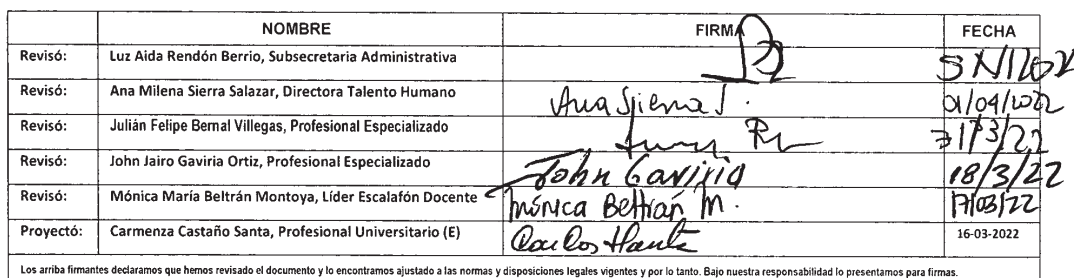 NOMBRE FIRMA FECHA
Revisó: Luz Aida Rendón Berrio, Subsecretaria Administrativa
Revisó: Ana Milena Sierra Salazar, Directora Talento Humano Ana Sierra S. 01/04/2022
Revisó: Julián Felipe Bernal Villegas, Profesional Especializado 31/3/22
Revisó: John Jairo Gaviria Ortiz, Profesional Especializado John Gaviria 18/3/22
Revisó: Mónica María Beltrán Montoya, Líder Escalafón Docente Mónica Beltrán M. 17/03/22
Proyectó: Carmenza Castaño Santa, Profesional Universitario (E) 16-03-2022
Los arriba firmantes declaramos que hemos revisado el documento y lo encontramos ajustado a las normas y disposiciones legales vigentes y por lo tanto. Bajo nuestra responsabilidad lo presentamos para firmas.